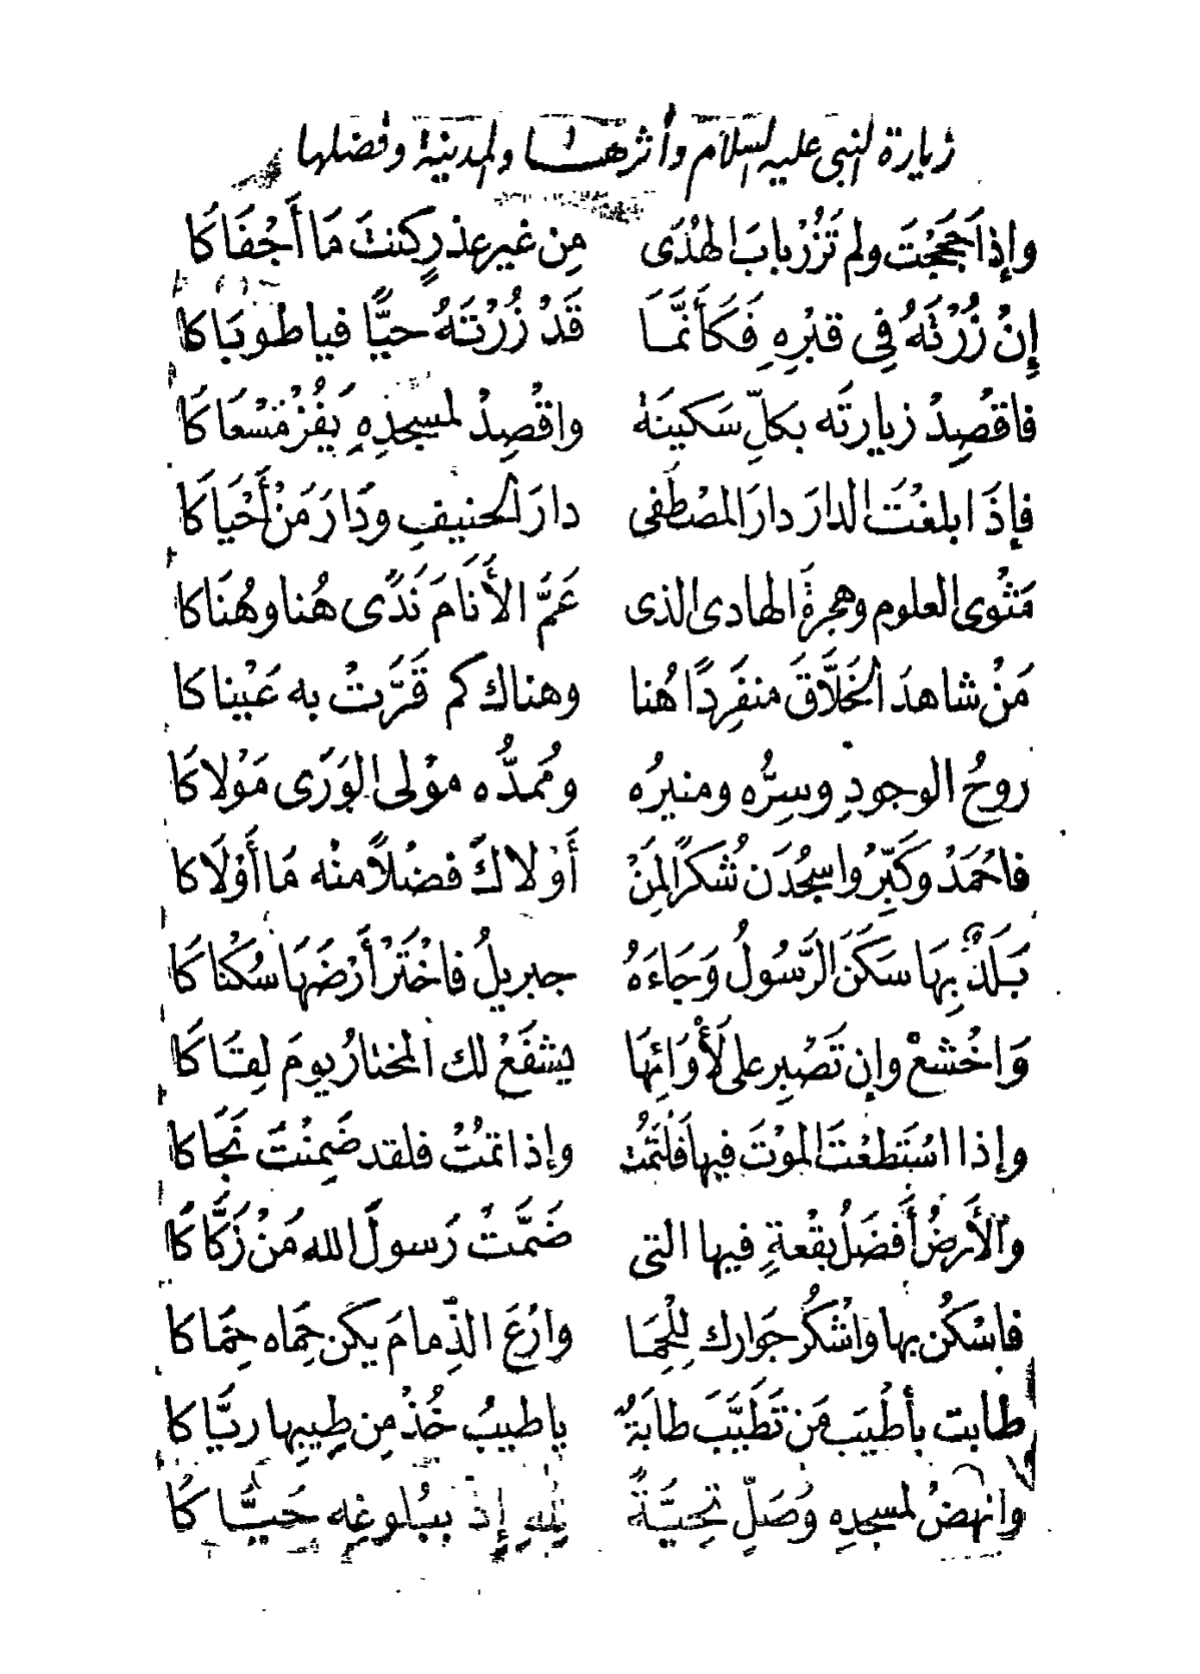 زيارة النبي عليه السلام وأثرها والمدينة وفضلها
وإذا حَجَجْتَ ولم تَزُرْ بابَ الهُدَى مِن غيرِ عذرٍ كنتَ مَا أَجْفَاكَا
إِنْ زُرْتَهُ فِي قبْرِهِ فَكَأَنَّمَا قَدْ زُرْتَهُ حيًّا فيا طُوبَاكا
فاقصِدْ زيارتَه بكلِّ سَكينَة واقْصِدْ لمسجدِهِ يَفُزْ مَسْعَاكَا
فإذَا بلغْتَ الدارَ دارَ المصْطَفى دارَ الحنيفِ ودَارَ مَنْ أَحْيَاكَا
مَثْوى العلوم وهجرةَ الهادى الذى عَمَّ الأَنَامَ نَدًى هُنا وهُنَاكا
مَنْ شاهدَ الخَلَّاقَ منفَرِدًا هُنا وهناك كم قَرَّتْ به عَيْناكا
روحُ الوجودِ وسِرُّه ومنيرُه ومُمدُّه موْلى الوَرَى مَوْلاكَا
فاحْمَدْ وكَبِّرْ واسجُدَن شُكرًا لِمَنْ أَوْلاكَ فضْلاً منْه مَا أَوْلَاكا
بَلَدٌ بِهَا سَكَنَ الرَّسُولُ وَجَاءَهُ جبريلُ فاخْتَرْ أَرْضَهَا سُكْناكَا
وَاخْشعْ وإن تَصْبِر على لَأْوَائِهَا يشفَعْ لك المختارُ يومَ لِقَاكَا
وإذا اسْتَطعْتَ الموْتَ فيها فَلْتَمُتْ وإذا تمُتْ فلقد ضَمِنْتَ نَجَاكا
والأَرضُ أَفضَلُ بقْعةٍ فيها التى ضَمَّتْ رَسولَ الله مَنْ زَكَّاكَا
فاسْكُن بها وَاشْكُرْ جَوارك لِلْحِمَا وارْعَ الذِّمامَ يكُن حِمَاه حِمَاكا
طابت بأطْيَبِ مَن تَطَيَّبَ طابَةٌ ياطيبُ خُذْ مِن طِيبِها ريَّاكا
وانهضْ لمسجدِه وَصَلِّ تحِيَّةً للهِ إِذْ ببُلوغِه حَيَّاكَا